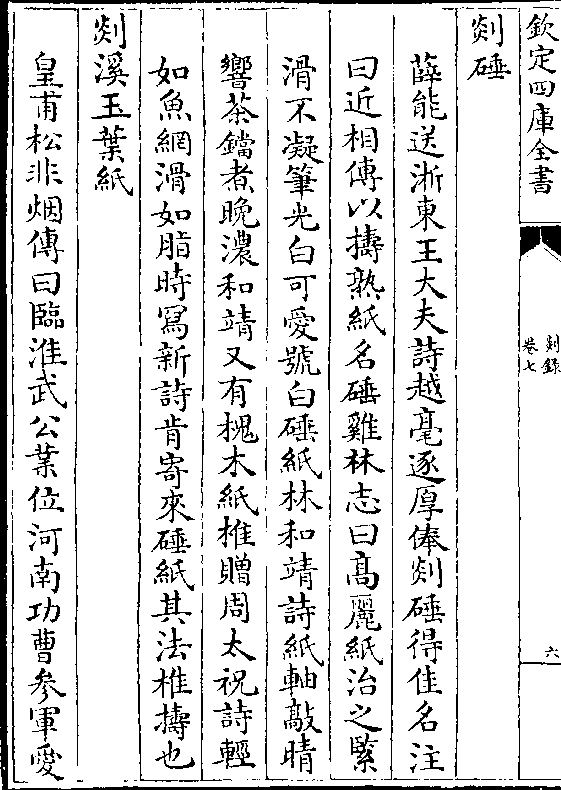 欽定四庫全書
剡錄
卷七
六
剡硾
薛能送浙東王大夫詩越毫逐厚俸剡硾得佳名注
曰近相傳以擣熟紙名硾雞林志曰髙麗紙治之緊
滑不凝筆光白可愛號白硾紙林和靖詩紙軸敲晴
響茶鐺煮晚濃和靖又有槐木紙椎贈周太祝詩輕
如魚網滑如脂時寫新詩肯寄來硾紙其法椎擣也
剡溪玉葉紙
皇甫松非烟傳曰臨淮武公業位河南功曹參軍愛